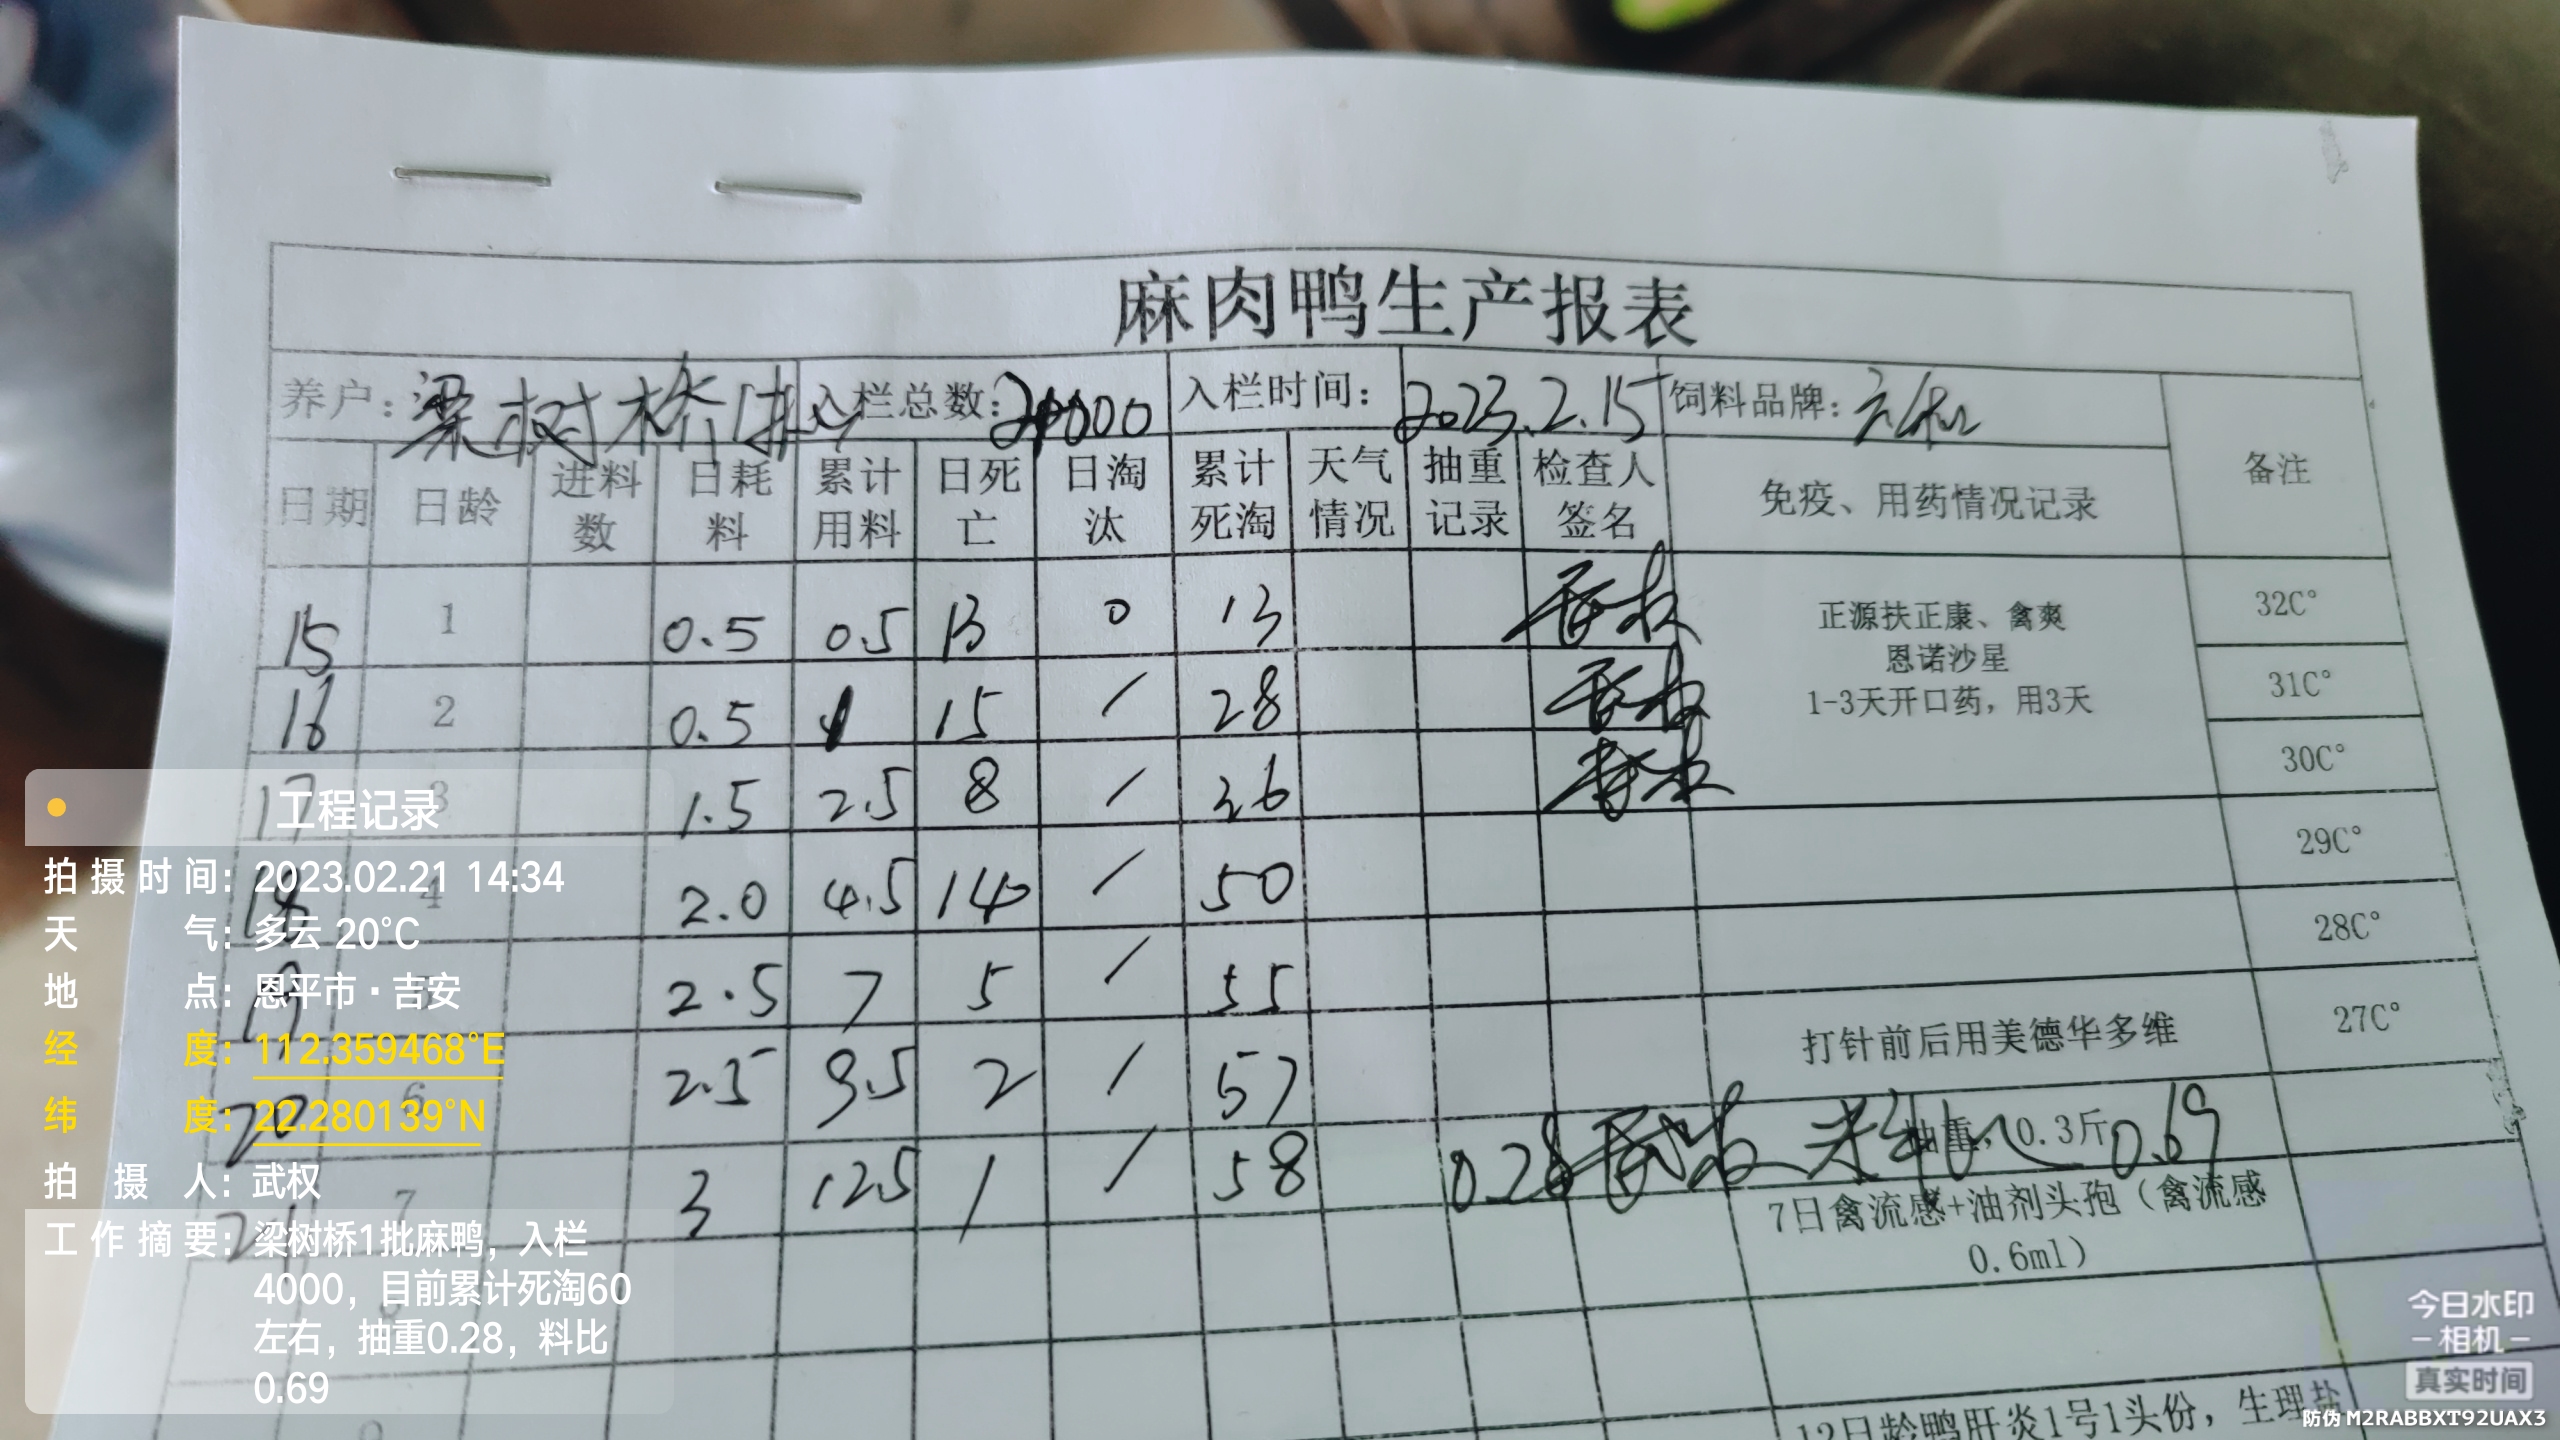 麻肉鸭生产报表
养户：梁树桥1批 入栏总数：4000 入栏时间：2023.2.15 饲料品牌： 备注
日期 日龄 进料数 日耗料 累计用料 日死亡 日淘汰 累计死淘 天气情况 抽重记录 检查人签名 免疫、用药情况记录
15 1 0.5 0.5 13 0 13 32C°
正源扶正康、禽爽
恩诺沙星
1-3天开口药，用3天
16 2 0.5 1 15 / 28 31C°
17 3 1.5 2.5 8 / 36 30C°
18 4 2.0 4.5 14 / 50 29C°
19 2.5 7 5 / 55 28C°
20 6 2.5 9.5 2 / 57 打针前后用美德华多维 27C°
21 7 3 12.5 1 / 58 0.28 抽重，0.3斤 料比 0.69
7日禽流感+油剂头孢（禽流感
0.6ml）
12日龄鸭肝炎1号1头份，生理盐
工程记录
拍摄时间：2023.02.21 14:34
天气：多云 20°C
地点：恩平市·吉安
经度：112.359468°E
纬度：22.280139°N
拍摄人：武权
工作摘要：梁树桥1批麻鸭，入栏
4000，目前累计死淘60
左右，抽重0.28，料比
0.69
今日水印
-相机-
真实时间
防伪 M2RABBXT92UAX3